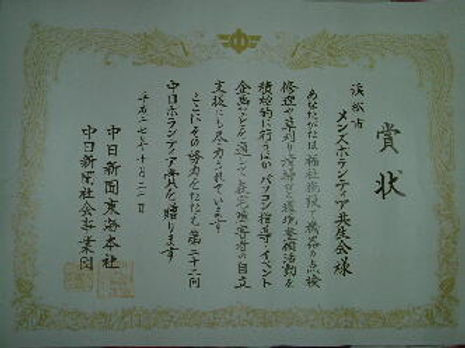 賞状
浜松市
メンズボランティア共生会様
あなたがたは福祉施設で機器の点検
修理や草刈り清掃など環境整備活動を
積極的に行うほかパソコン指導やイベント
企画などを通じて在宅障害者の自立
支援にも尽力されています
ここにその努力をたたえ第二十二回
中日ボランティア賞を贈ります
平成二七年十月二一日
中日新聞東海本社
中日新聞社会事業団